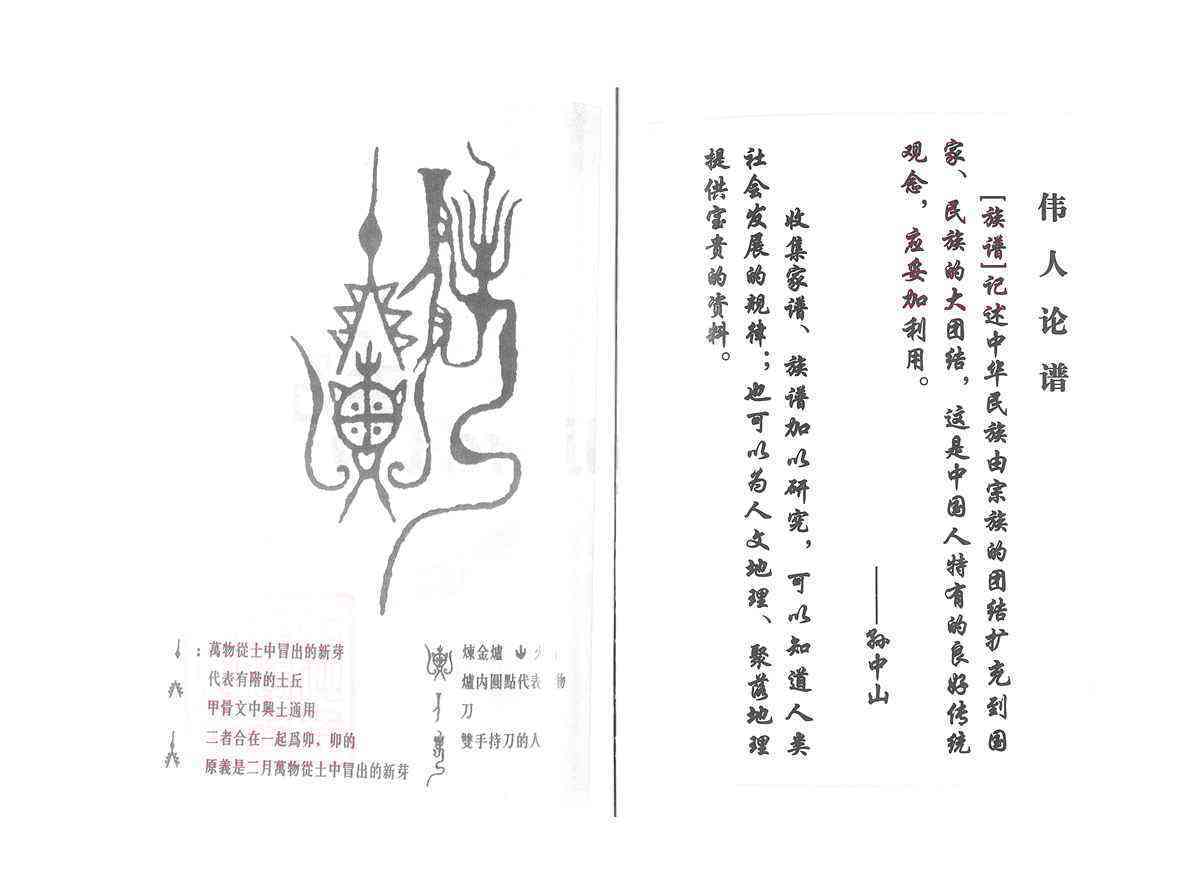 伟人论谱
［族谱］记述中华民族由宗族的团结扩充到国
家、民族的大团结，这是中国人特有的良好传统
观念，应妥加利用。
——孙中山
收集家谱、族谱加以研究，可以知道人类
社会发展的规律；也可以为人文地理、聚落地理
提供宝贵的资料。
：萬物從土中冒出的新芽
代表有階的土丘
甲骨文中與土通用
二者合在一起爲卯，卯的
原義是二月萬物從土中冒出的新芽
煉金爐 火
爐内圓點代表 物
刀
雙手持刀的人